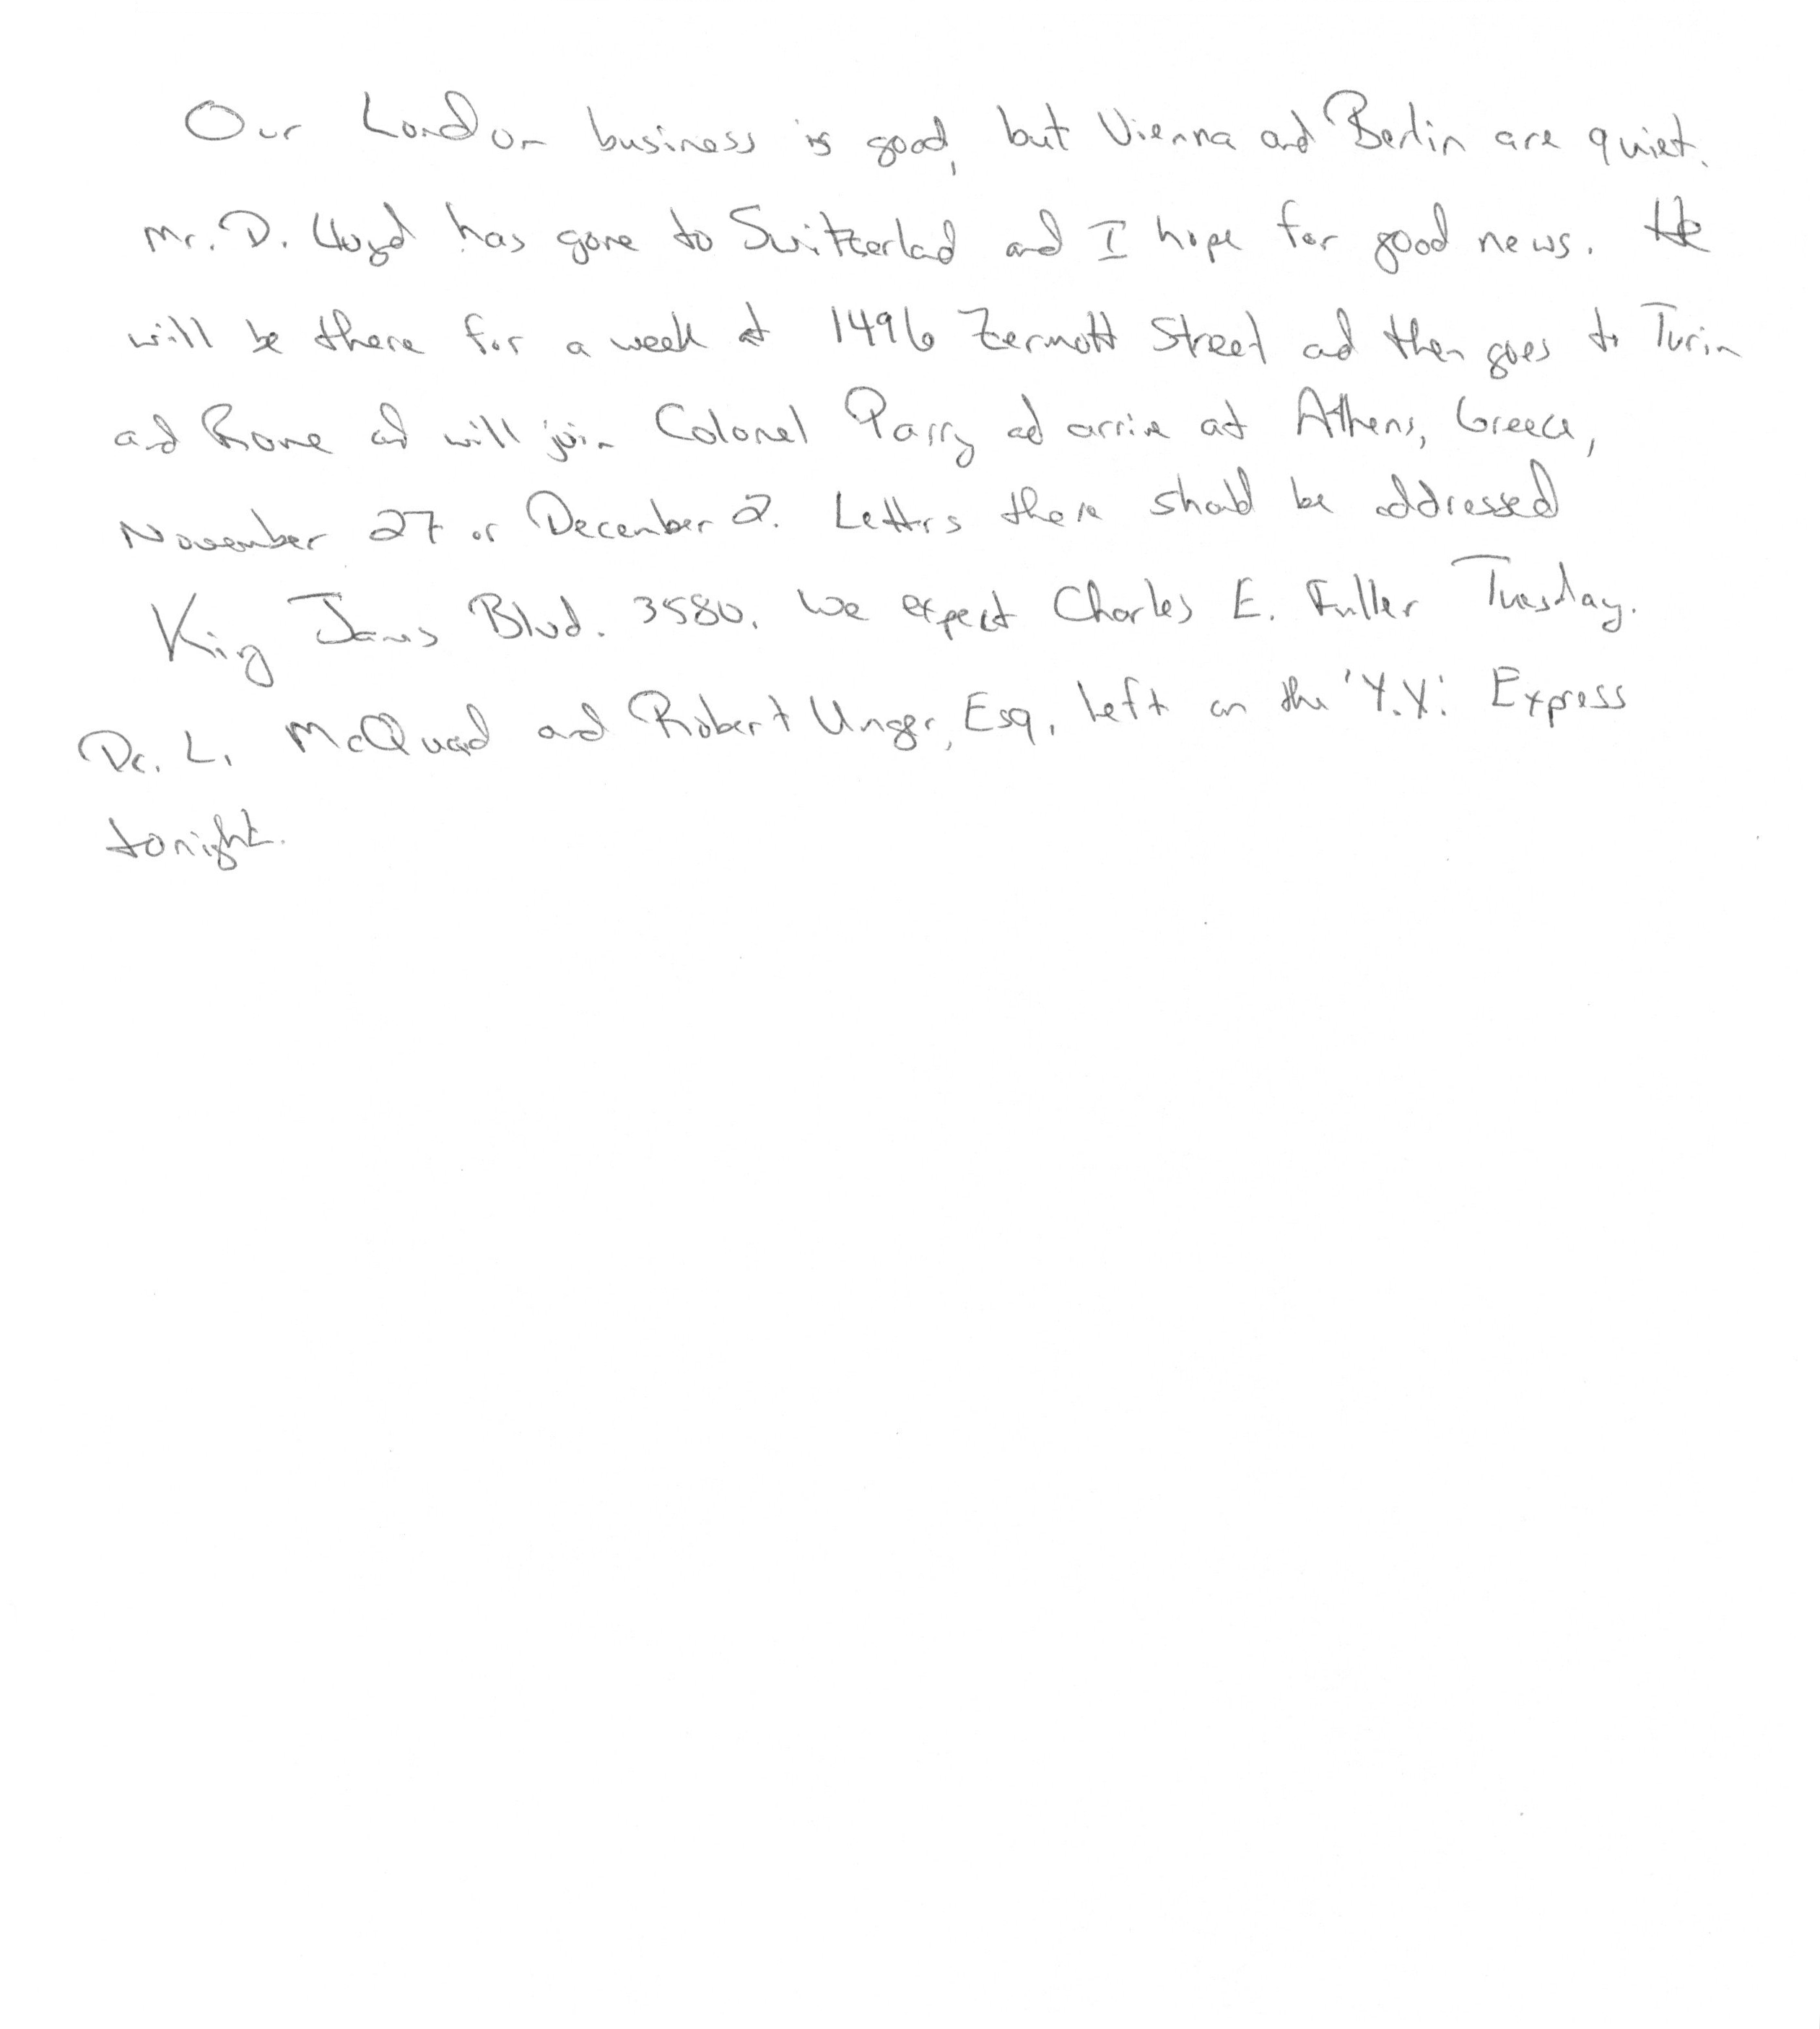 Our London business is good, but Vienna and Berlin are quiet.
Mr. D. Lloyd has gone to Switzerlad and I hope for good news. He
will be there for a week at 1496 Zermott Street ad then goes to Turin
and Rome ad will join Colonel Parry ad arrive at Athens, Greece,
November 27 or December 2. Letters there should be addressed
King James Blvd. 3580. We expect Charles E. Fuller Tuesday.
Dr. L. McQuaid and Robert Unger, Esq. left on the 'Y.X.' Express
tonight.